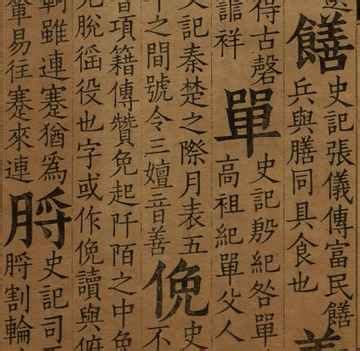 饍
史記張儀傳富民饍
兵與膳同具食也
善
得古磬
祥
單
史記殷紀咎單
高祖紀單父人
史記秦楚之際月表五
之間號令三嬗音善
俛
史
不
項籍傳贊免起阡陌之中
脫徭役也字或作俛讀與俯
雖連蹇猶為
易往蹇來連
脟
史記司
脟割輪